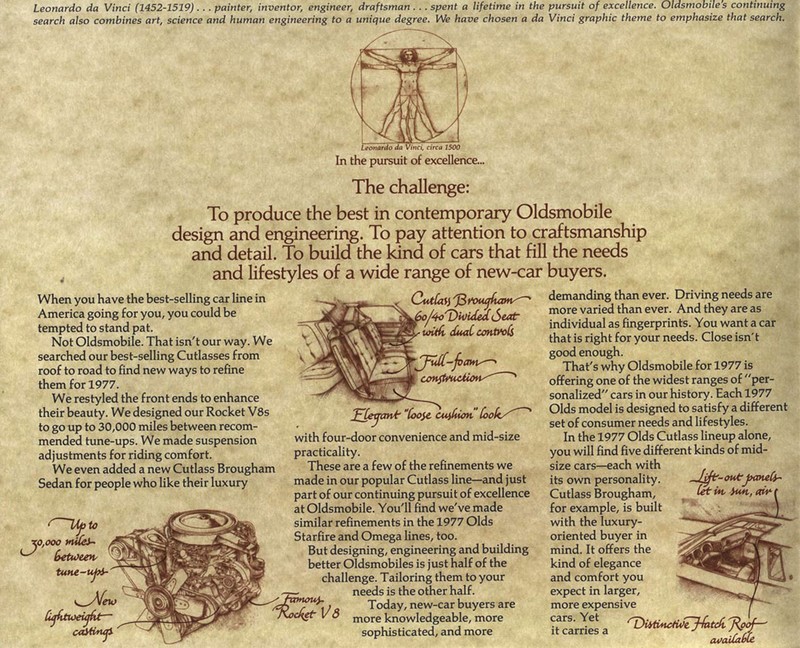 Leonardo da Vinci (1452-1519) . . . painter, inventor, engineer, draftsman . . . spent a lifetime in the pursuit of excellence. Oldsmobile's continuing
search also combines art, science and human engineering to a unique degree. We have chosen a da Vinci graphic theme to emphasize that search.
Leonardo da Vinci, circa 1500
In the pursuit of excellence...
The challenge:
To produce the best in contemporary Oldsmobile
design and engineering. To pay attention to craftsmanship
and detail. To build the kind of cars that fill the needs
and lifestyles of a wide range of new-car buyers.
When you have the best-selling car line in
America going for you, you could be
tempted to stand pat.
Not Oldsmobile. That isn't our way. We
searched our best-selling Cutlasses from
roof to road to find new ways to refine
them for 1977.
We restyled the front ends to enhance
their beauty. We designed our Rocket V8s
to go up to 30,000 miles between recom-
mended tune-ups. We made suspension
adjustments for riding comfort.
We even added a new Cutlass Brougham
Sedan for people who like their luxury
Up to
30,000 miles
between
tune-ups
New
lightweight
castings
Famous
Rocket V8
Cutlass Brougham
60/40 Divided Seat
with dual controls
Full-foam
construction
Elegant "loose cushion" look
with four-door convenience and mid-size
practicality.
These are a few of the refinements we
made in our popular Cutlass line—and just
part of our continuing pursuit of excellence
at Oldsmobile. You'll find we've made
similar refinements in the 1977 Olds
Starfire and Omega lines, too.
But designing, engineering and building
better Oldsmobiles is just half of the
challenge. Tailoring them to your
needs is the other half.
Today, new-car buyers are
more knowledgeable, more
sophisticated, and more
demanding than ever. Driving needs are
more varied than ever. And they are as
individual as fingerprints. You want a car
that is right for your needs. Close isn't
good enough.
That's why Oldsmobile for 1977 is
offering one of the widest ranges of "per-
sonalized" cars in our history. Each 1977
Olds model is designed to satisfy a different
set of consumer needs and lifestyles.
In the 1977 Olds Cutlass lineup alone,
you will find five different kinds of mid-
size cars—each with
its own personality.
Cutlass Brougham,
for example, is built
with the luxury-
oriented buyer in
mind. It offers the
kind of elegance
and comfort you
expect in larger,
more expensive
cars. Yet
it carries a
Lift-out panels
let in sun, air
Distinctive Hatch Roof
available